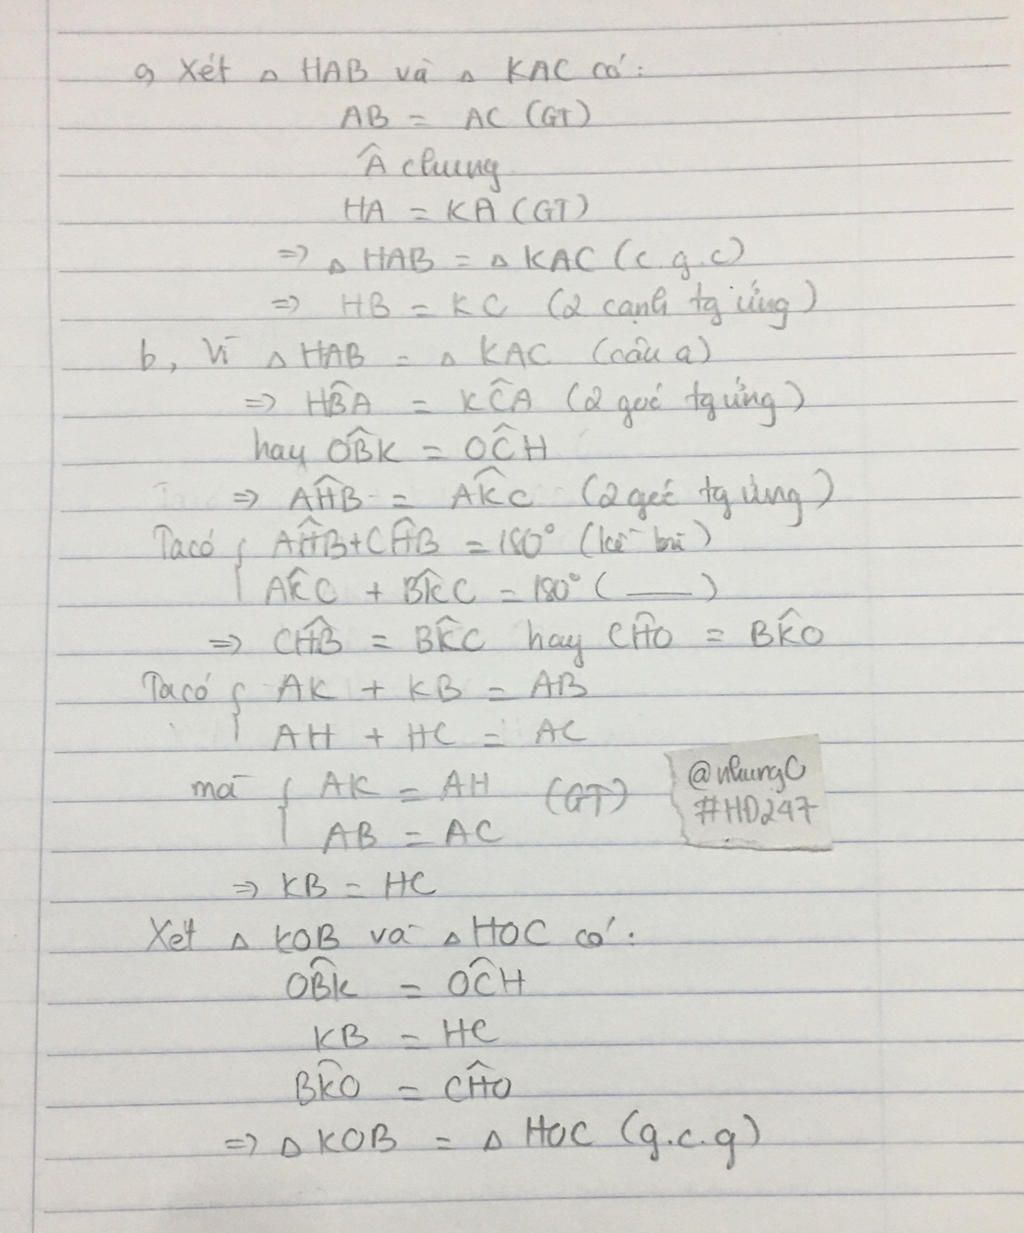 a, Xét △ HAB và △ KAC có:
AB = AC (GT)
Â chung
HA = KA (GT)
=> △ HAB = △ KAC (c.g.c)
=> HB = KC (2 cạnh tg ứng)
b, Vì △ HAB = △ KAC (câu a)
=> HB̂A = KĈA (2 góc tg ứng)
hay OB̂K = OĈH
=> AĤB = AK̂C (2 góc tg ứng)
Ta có { AĤB + CĤB = 180° (kề bù)
AK̂C + BK̂C = 180° ( — )
=> CĤB = BK̂C hay CĤO = BK̂O
Ta có { AK + KB = AB
AH + HC = AC
mà { AK = AH (GT)
AB = AC
@nhungC
#HD247
=> KB = HC
Xét △ KOB và △ HOC có:
OB̂K = OĈH
KB = HC
BK̂O = CĤO
=> △ KOB = △ HOC (g.c.g)